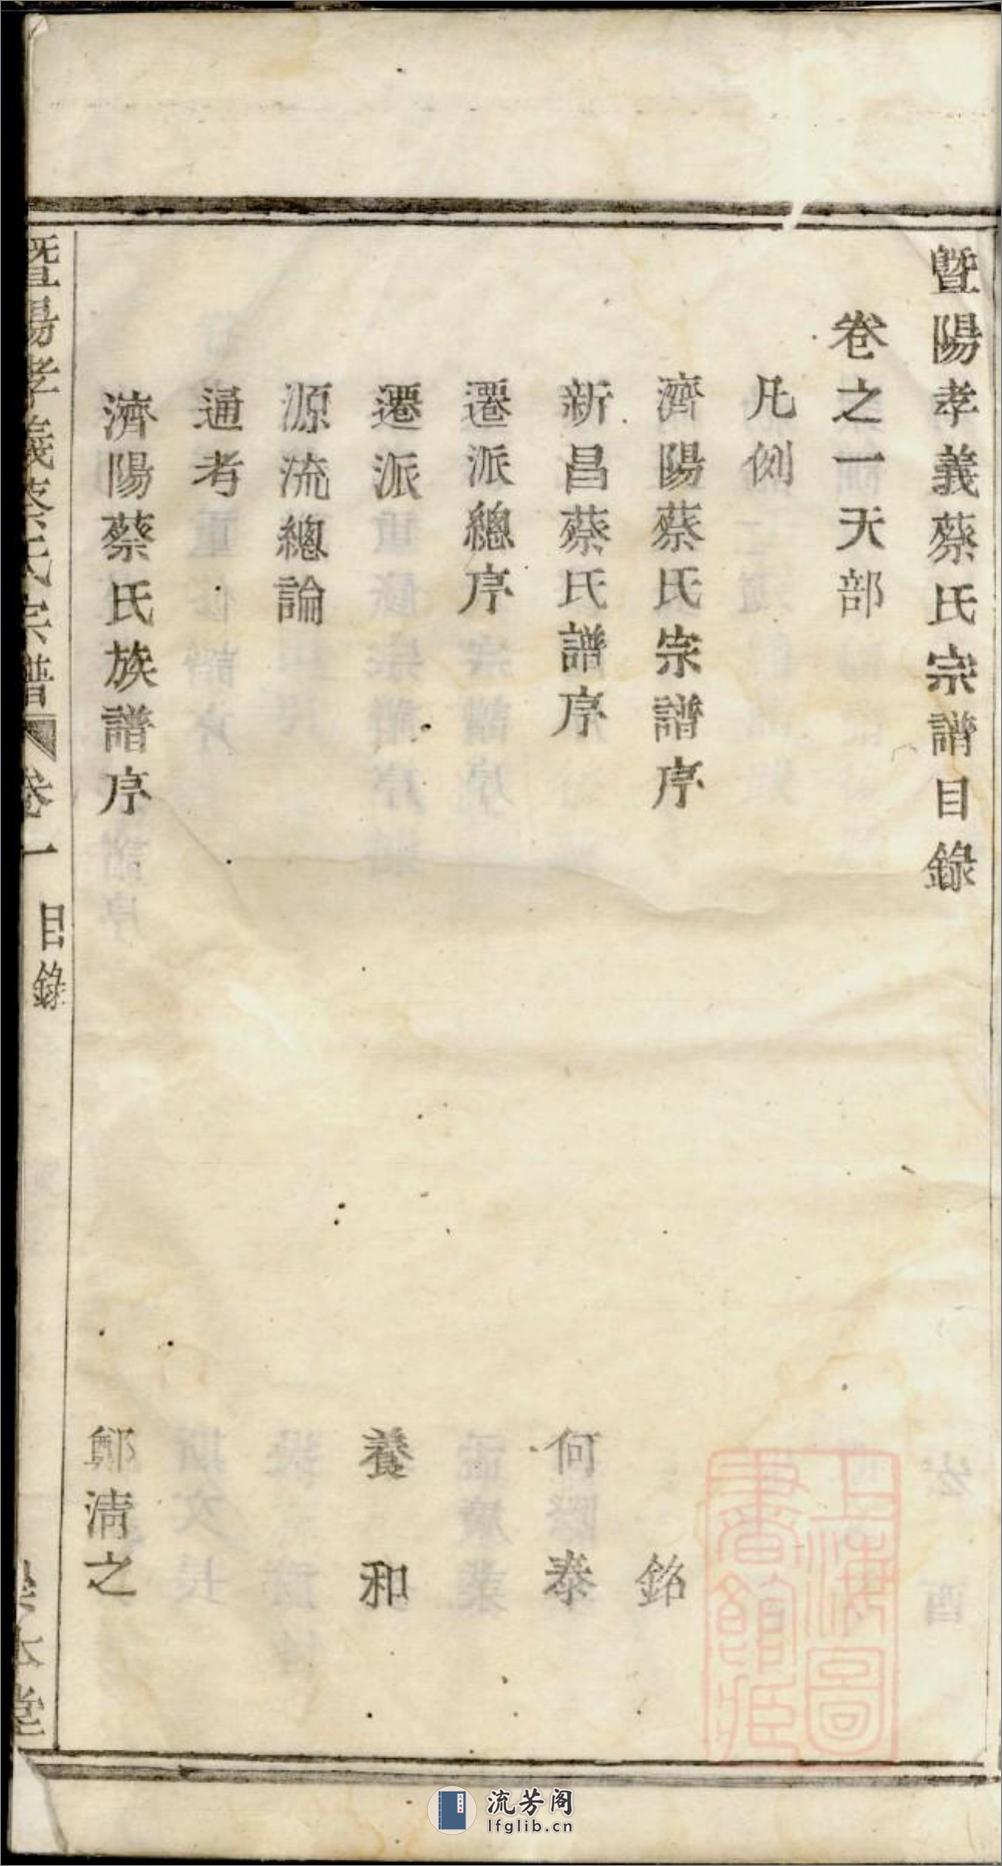 暨陽孝義蔡氏宗譜目錄
卷之一天部
凡例
濟陽蔡氏宗譜序 銘
新昌蔡氏譜序 何泰
遷派總序
遷派 養和
源流總論
通考
濟陽蔡氏族譜序 鄭清之
暨陽孝義蔡氏宗譜 卷一 目錄
上海圖書館藏
流芳阁
lfglib.cn